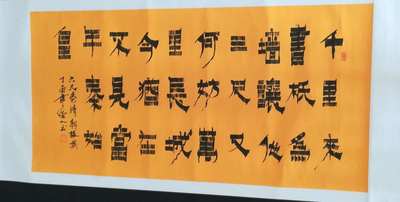 千里來
書祇為
墻讓他
三尺又
何妨萬
里長城
今猶在
不見當
年秦始
皇
六尺巷詩
丁酉